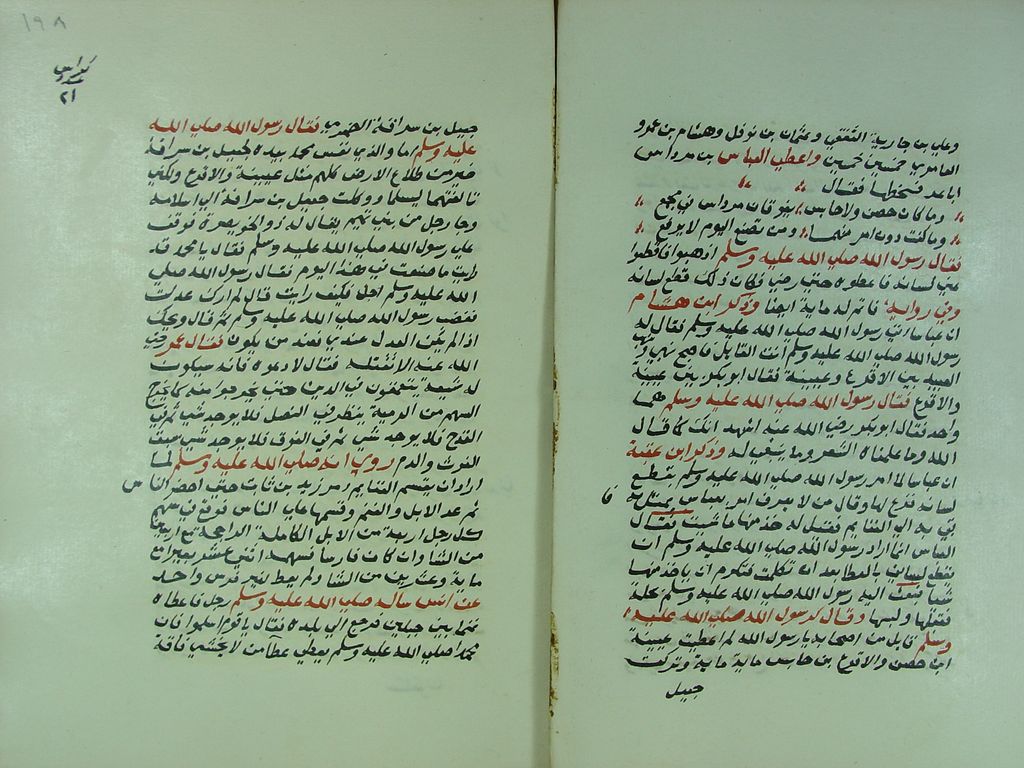 وعلي بن جارية الثقفي وعثمان بن نوفل وهشام بن عمرو
العامري خمسين خمسين واعطي العباس بن مرداس
اباعر فسخطها فقال
وما كان حصن ولا حابس يفوقان مرداس في مجمع
وما كنت دون امرء منهما ومن تضع اليوم لا يرفع
فقال رسول الله صلي الله عليه وسلم اذهبوا فاقطعوا
عني لسانه فاعطوه حتي رضي فكان ذلك قطع لسانه
وفي رواية فاتم له ماية ايضا وذكر ابن هشام
ان عباسا اتي رسول الله صلي الله عليه وسلم فقال له
رسول الله صلي الله عليه وسلم انت القايل فاصبح نهبي ونهب
العبيد بين الاقرع وعيينة فقال ابو بكر بين عيينة
والاقرع فقال رسول الله صلي الله عليه وسلم هما
واحد فقال ابو بكر رضي الله عنه اشهد انك كما قال
الله وما علمناه الشعر وما ينبغي له وذكر ابن عقبة
ان عباسا لما امر رسول الله صلي الله عليه وسلم بقطع
لسانه فزع لها وقال من لا يعرف امر بعباس يمثل به
به الي الغنايم فقيل له خذ منها ما شيت فقال
العباس انما اراد رسول الله صلي الله عليه وسلم ان
يقطع لساني بالعطا بعد ان تكلمت فتكرم ان ياخذ منها
شيا فبعث اليه رسول الله صلي الله عليه وسلم بحلة
فقبلها ولبسها وقال لرسول الله صلي الله عليه
وسلم قايل من اصحابه يا رسول الله لم اعطيت عيينة
ابن حصن والاقرع بن حابس ماية ماية وتركت
جعيل
١٩٨
كراس
عدد
٢١
جعيل بن سراقة الضمري فقال رسول الله صلي الله
عليه وسلم اما والذي نفس محمد بيده لجعيل بن سراقة
خير من طلاع الارض كلهم مثل عيينة والاقرع ولكني
تالفتهما ليسلما ووكلت جعيل بن سراقة الي اسلامه
وجا رجل من بني تميم يقال له ذو الخويصرة فوقف
علي رسول الله صلي الله عليه وسلم فقال يا محمد قد
رايت ما صنعت في هذا اليوم فقال رسول الله صلي
الله عليه وسلم اجل فكيف رايت قال لم ارك عدلت
فغضب رسول الله صلي الله عليه وسلم ثم قال ويحك
اذا لم يكن العدل عندي فعند من يكون فقال عمر رضي
الله عنه الا نقتله فقال لا دعوه فانه سيكون
له شيعة يتعمقون في الدين حتي يخرجوا منه كما يخرج
السهم من الرمية ينظر في النصل فلا يوجد شي ثم في
القدح فلا يوجد شي ثم في الفوق فلا يوجد شي سبق
الفرث والدم روي انه صلي الله عليه وسلم لما
اراد ان يقسم الغنايم امر زيد بن ثابت حتي احضر الناس
ثم عد الابل والغنم وقسمها علي الناس فوقع في سهم
كل رجل اربعة من الابل مع اربعين
من الشا وان كان فارسا فسهمه اثني عشر بعيرا مع
ماية وعشرين من الشا ولم يعط لغير فرس واحد
عن انس ساله صلي الله عليه وسلم رجل فاعطاه
غنما بين جبلين فرجع الي بلده فقال يا قوم اسلموا فان
محمدا صلي الله عليه وسلم يعطي عطآ من لا يخشي فاقة